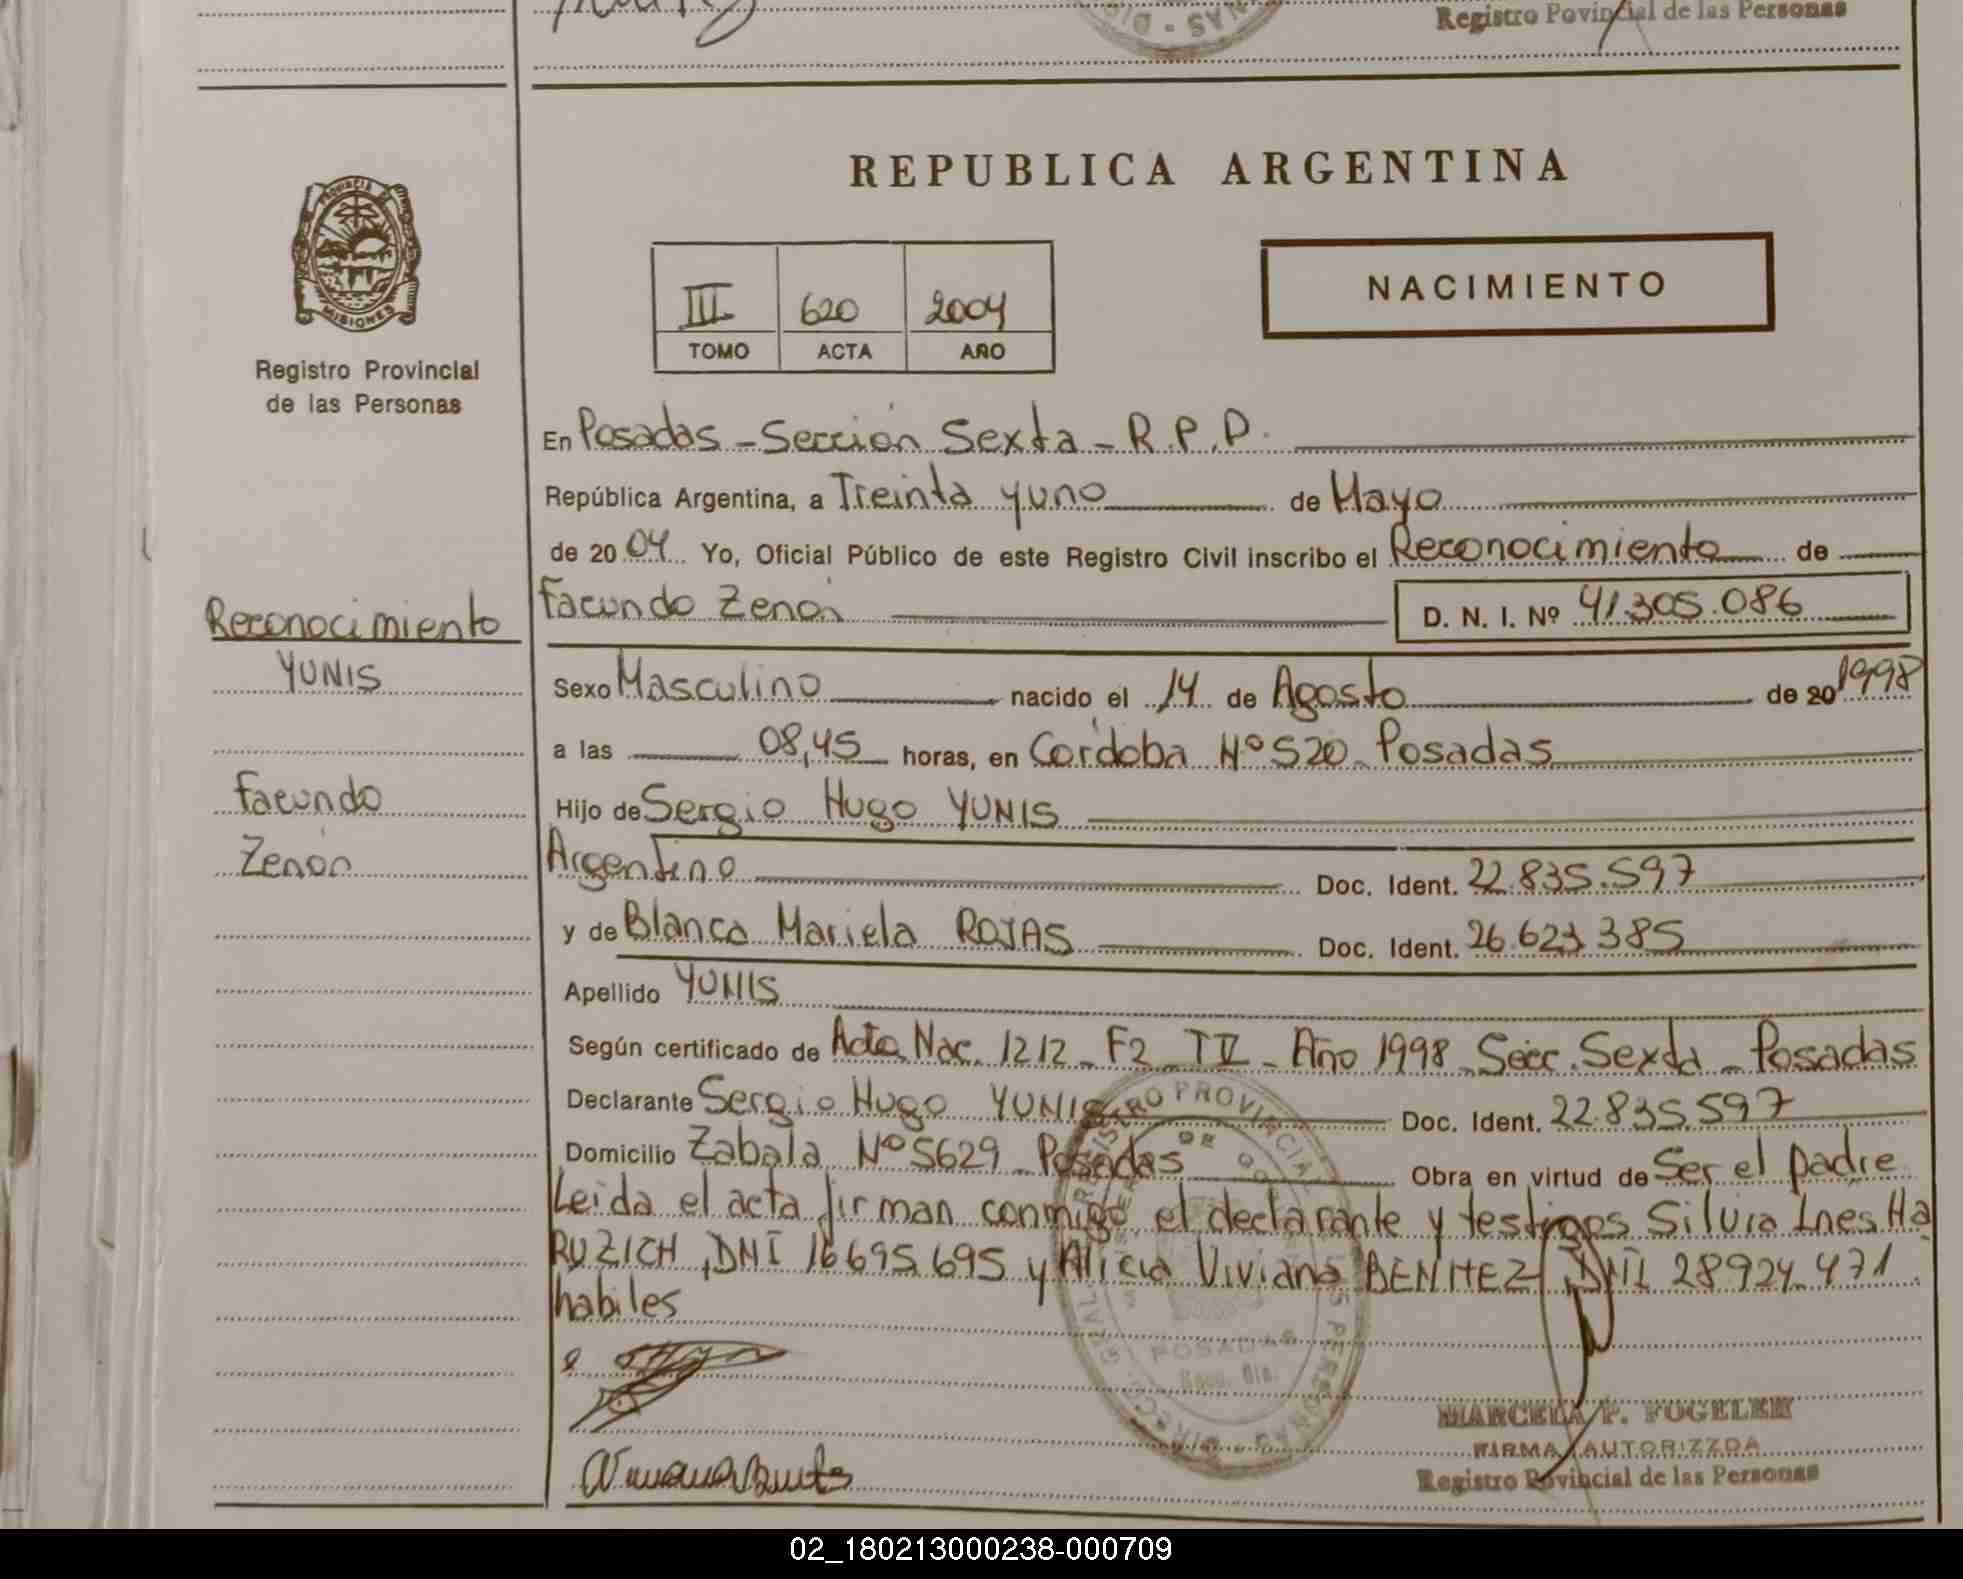 Registro Povincial de las Personas
REPUBLICA ARGENTINA
PROVINCIA DE
MISIONES
Registro Provincial
de las Personas
III 620 2004
TOMO ACTA AÑO
NACIMIENTO
En Posadas - Sección Sexta - R.P.P.
República Argentina, a Treinta y uno de Mayo
de 20 04 Yo, Oficial Público de este Registro Civil inscribo el Reconocimiento de
Facundo Zenón D. N. I. Nº 41.305.086
Reconocimiento
YUNIS
Facundo
Zenón
Sexo Masculino nacido el 14 de Agosto de 20 1998
a las 08,45 horas, en Córdoba Nº 520 - Posadas
Hijo de Sergio Hugo YUNIS
Argentino Doc. Ident. 22.835.597
y de Blanca Mariela ROJAS Doc. Ident. 26.623.385
Apellido YUNIS
Según certificado de Acta Nac. 1212 - F2 - T V - Año 1998 - Secc. Sexta - Posadas
Declarante Sergio Hugo YUNIS Doc. Ident. 22.835.597
Domicilio Zabala Nº 5629 - Posadas Obra en virtud de Ser el padre
Leida el acta firman conmigo el declarante y testigos Silvia Ines Ha
RUZICH, DNI 16.695.695 y Alicia Viviana BENITEZ, DNI 28924.471
habiles
POSADAS
MARCELA P. FOGELER
FIRMA AUTORIZZDA
Registro Provincial de las Personas
02_180213000238-000709